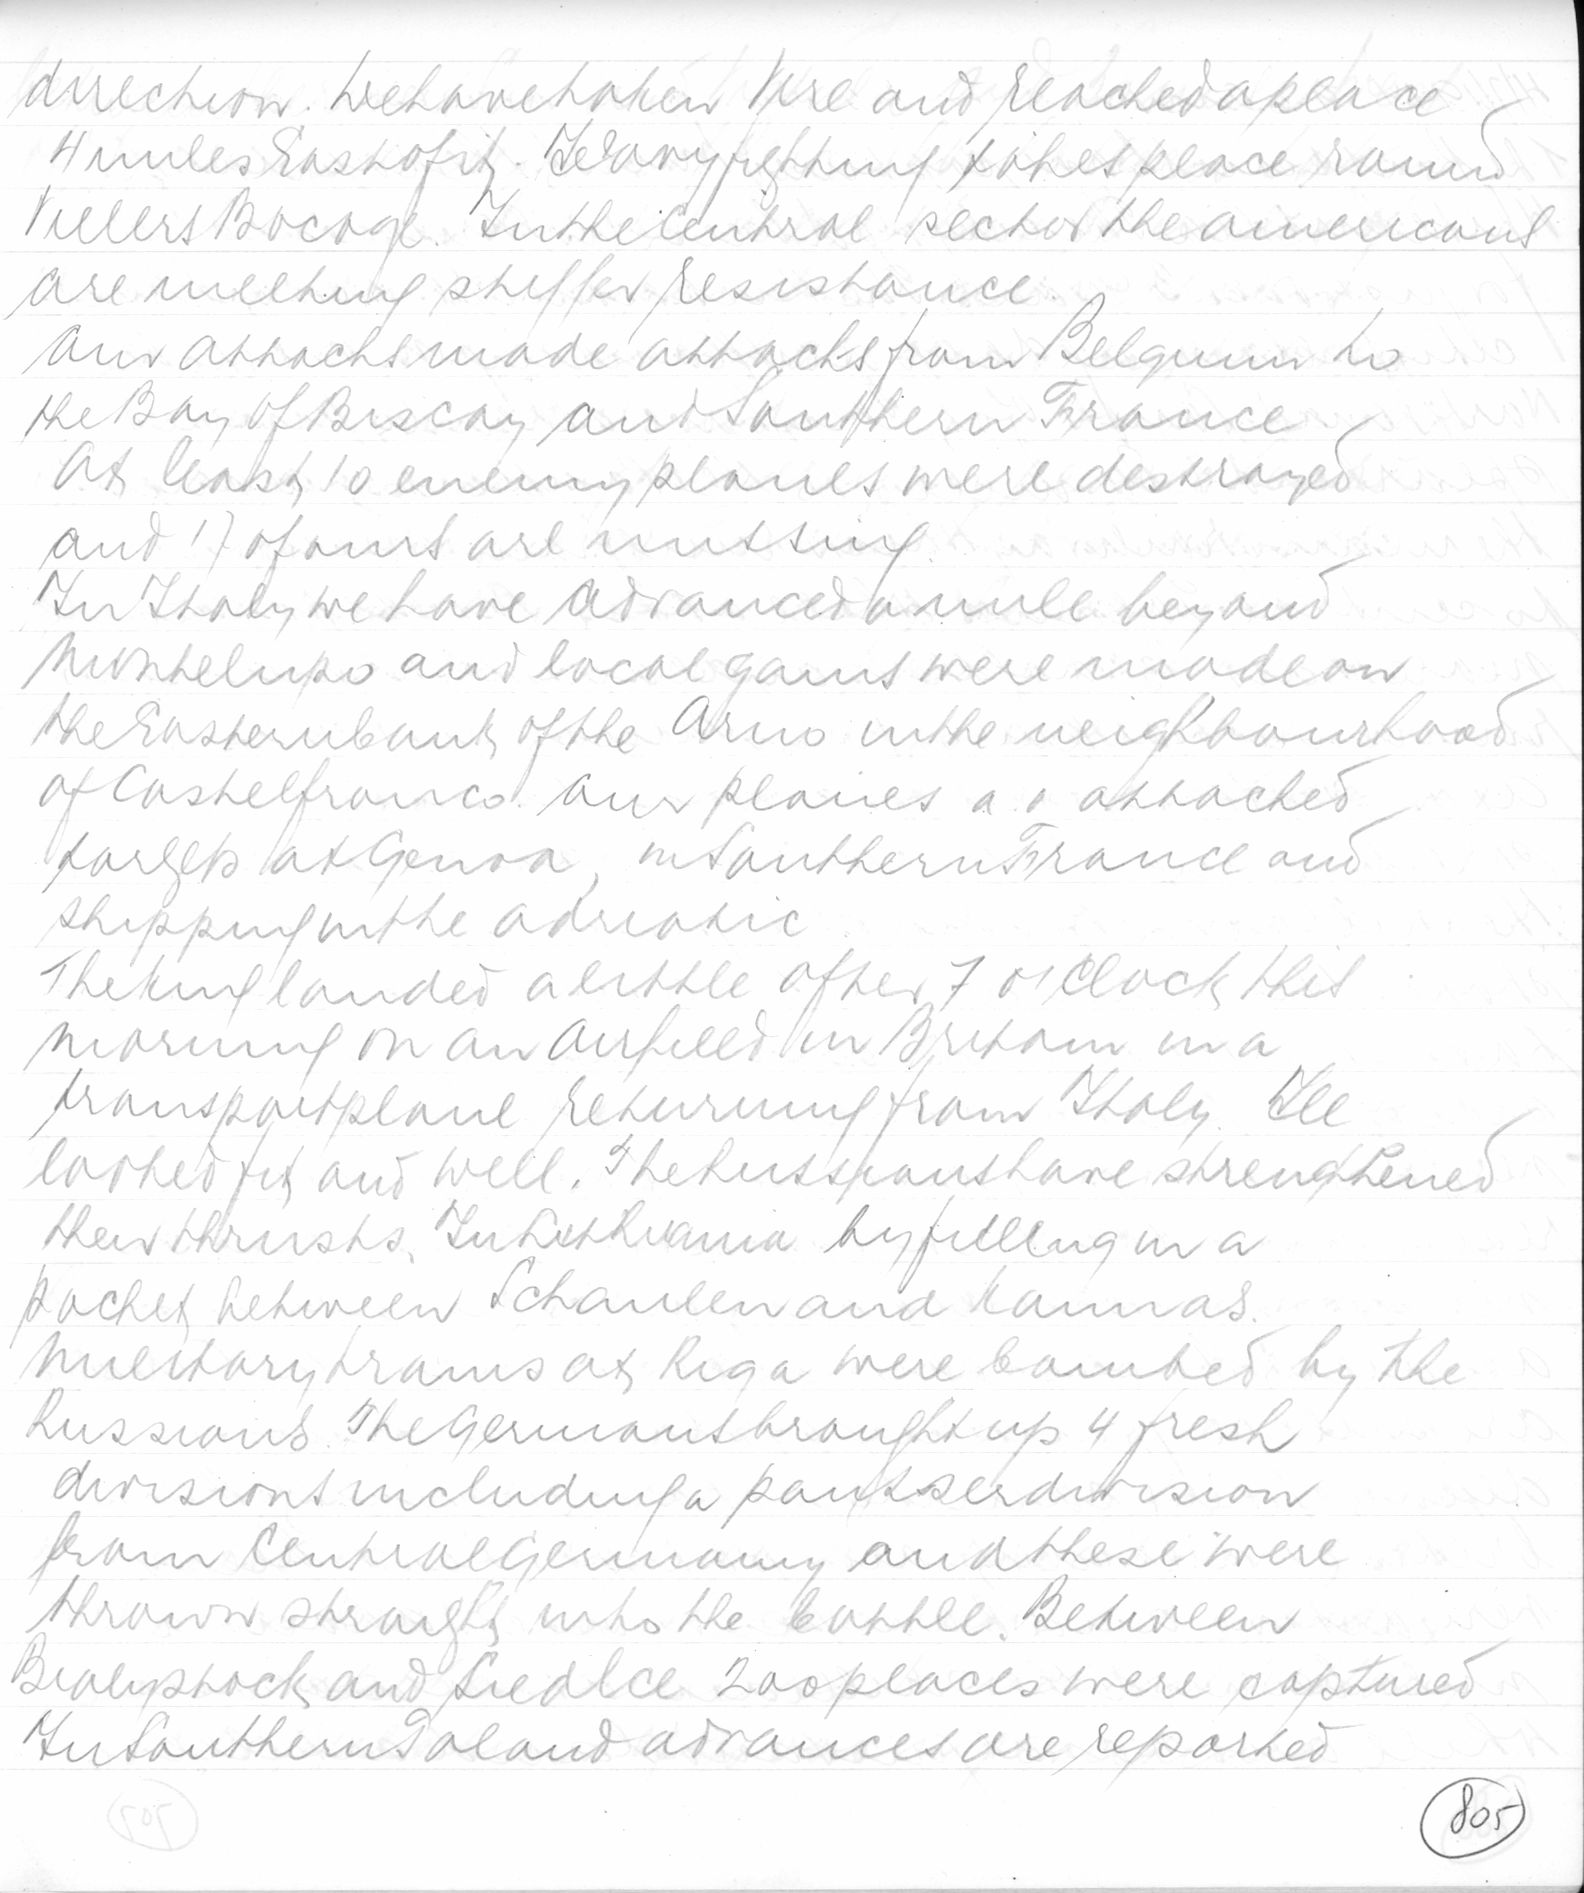 direction. We have taken Vire and reached a place
4 miles East of it. Heavy fighting takes place round
Villers Bocage. In the Central sector the americans
are meeting stiffer resistance.
Our attacks made attacks from Belgium to
the Bay of Biscay and Southern France
At least 10 enemy planes were destroyed
and 17 of ours are missing.
In Italy we have advanced a mile beyond
Montelupo and local gains were made on
the Eastern bank of the Arno in the neighbourhood
of Castelfranco. Our planes a o attacked
targets at Genoa, in Southern France and
shipping in the adriatic.
The King landed a little after 7 o'Clock this
morning on an airfield in Britain in a
transport plane returning from Italy. He
looked fit and well. The Russians have strengthened
their thrusts. In Lithuania by filling in a
pocket between Schaulen and Kaunas.
Military trains at Riga were bombed by the
Russians. The Germans brought up 4 fresh
divisions including a pantsserdivision
from Central Germany and these were
thrown straight into the battle. Between
Bialystock and Siedlce 200 places were captured
In Southern Poland advances are reported
805